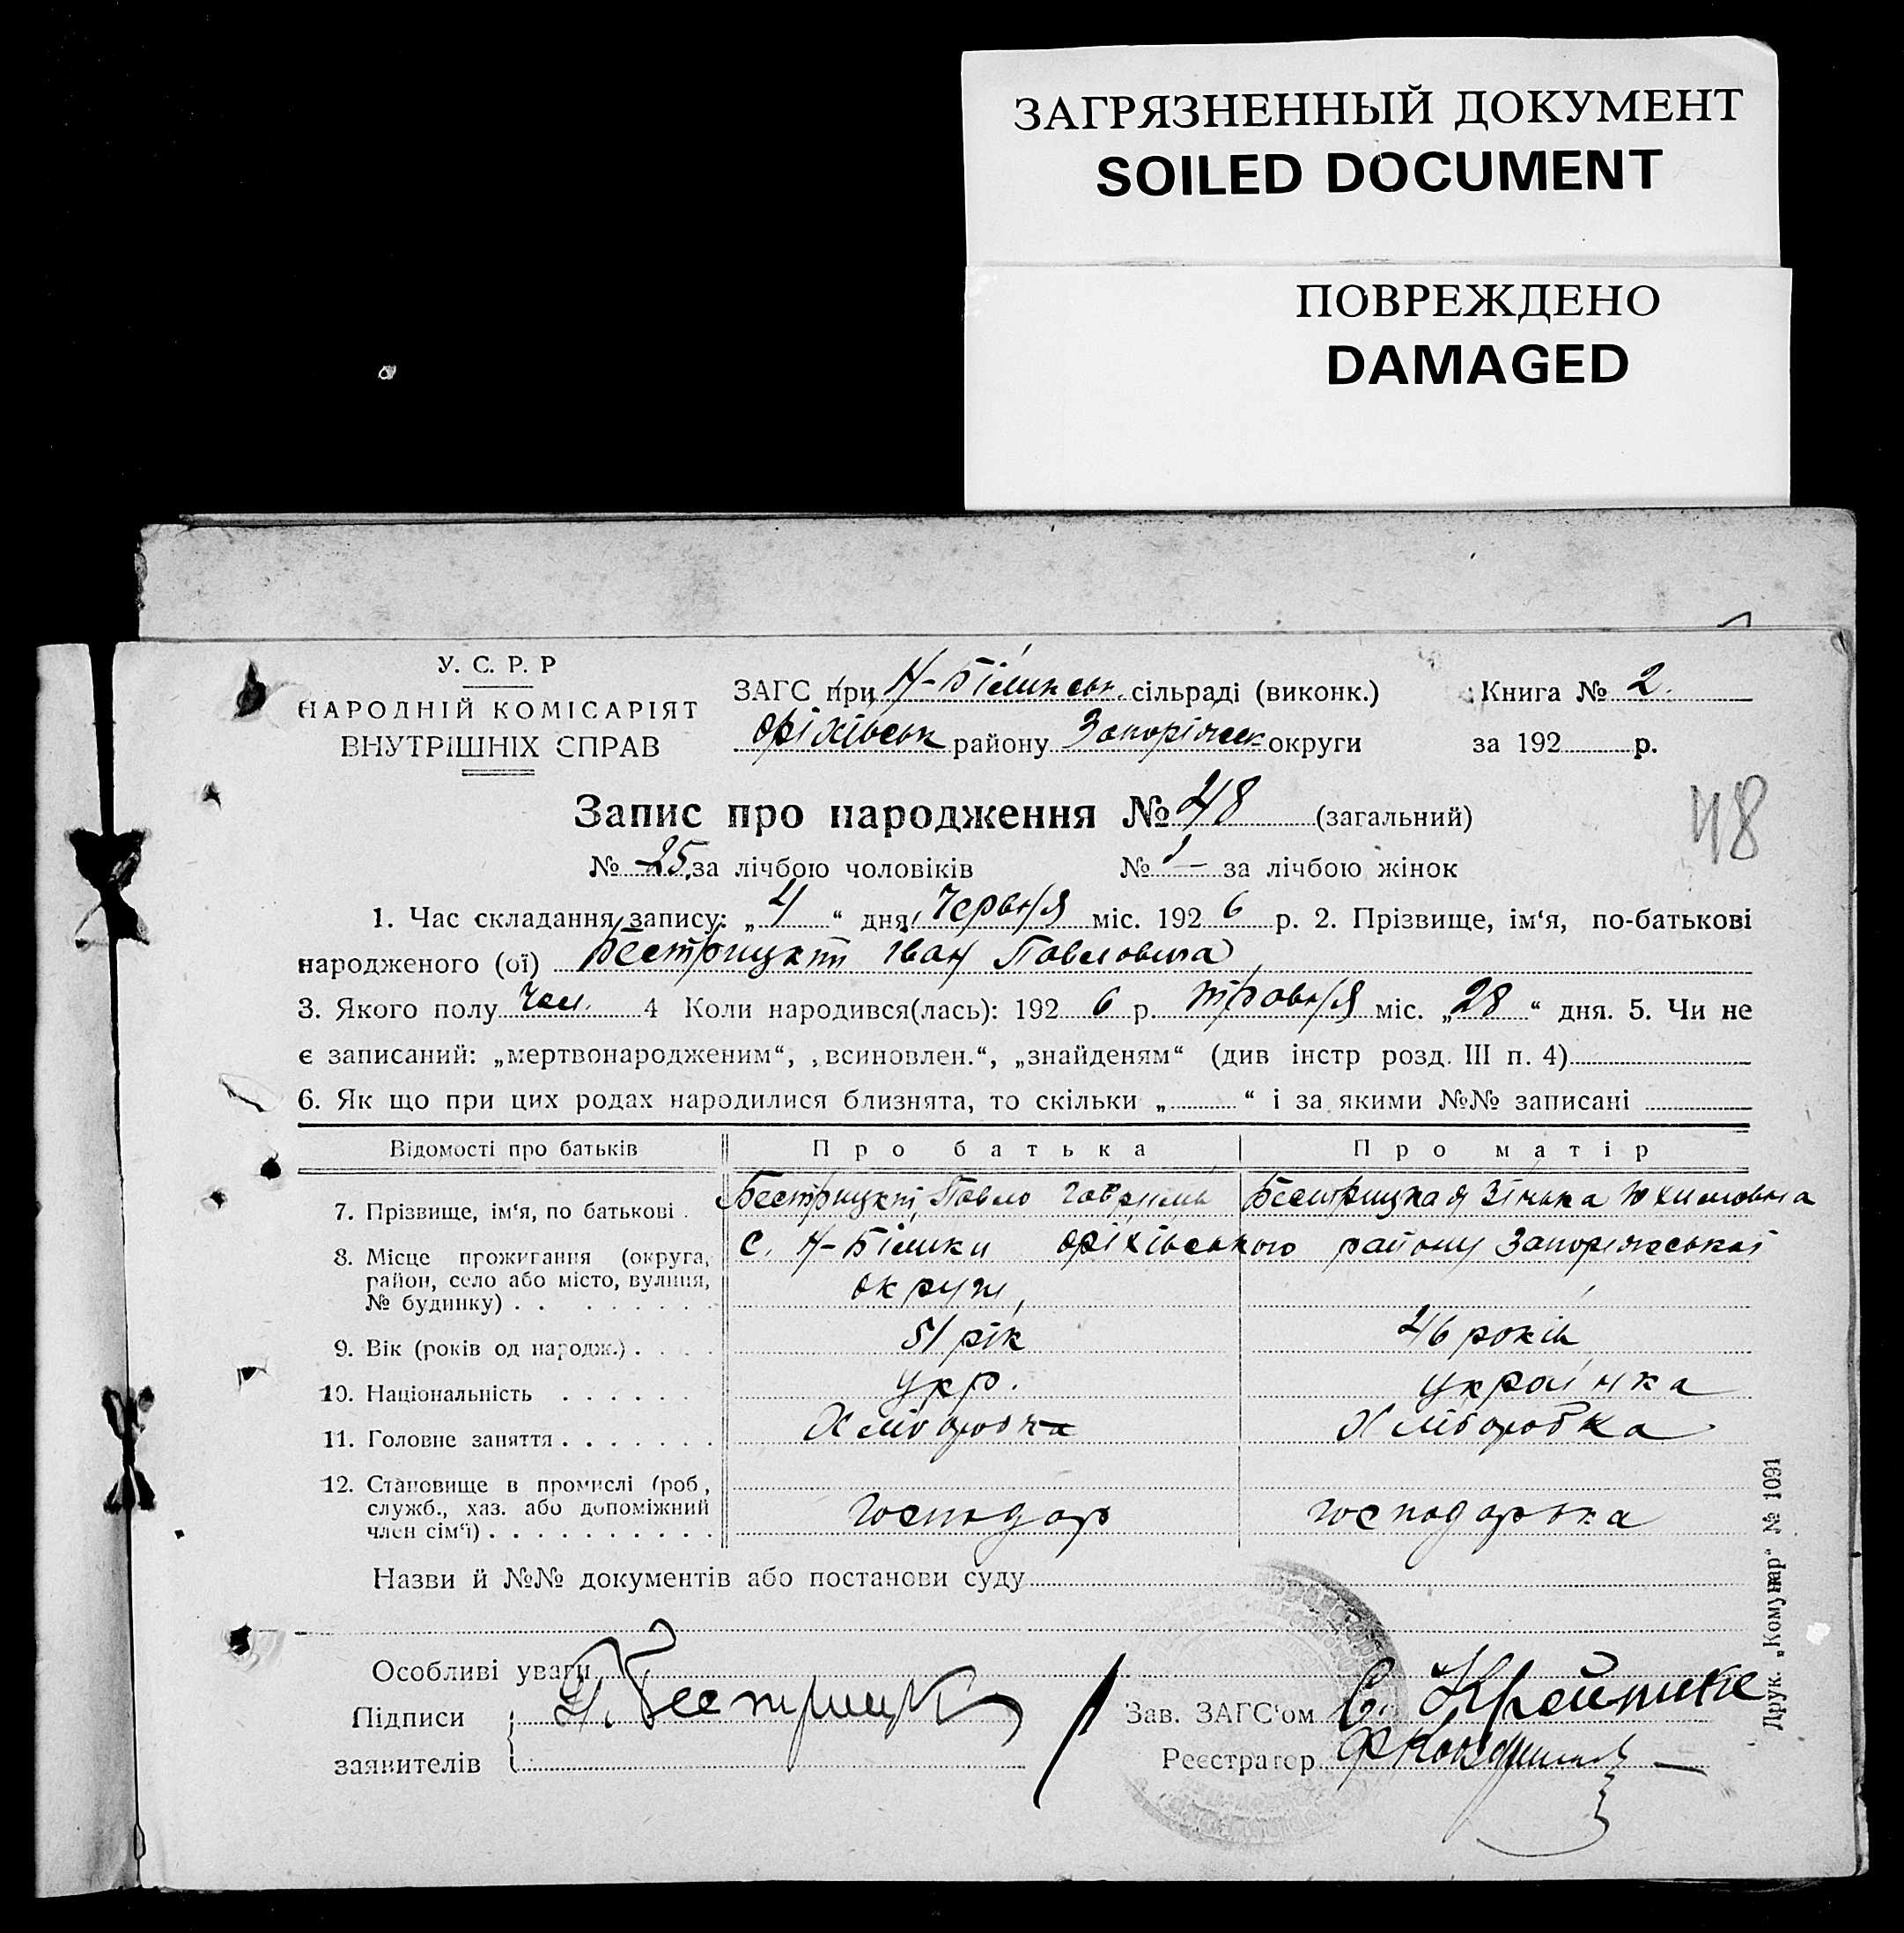 ЗАГРЯЗНЕННЫЙ ДОКУМЕНТ
SOILED DOCUMENT
ПОВРЕЖДЕНО
DAMAGED
У. С. Р. Р
НАРОДНІЙ КОМІСАРІЯТ
ВНУТРІШНІХ СПРАВ
ЗАГС при сільраді (виконк.)
Оріхівськ району Запоріжськ округи
Книга № 2.
за 192 р.
Запис про народження № 48 (загальний)
48
№ 25 за лічбою чоловіків № — за лічбою жінок
1. Час складання запису: „ 4 “ дня Червня міс. 192 6 р. 2. Прізвище, ім‘я, по-батькові
народженого (ої) Іван Павлович
3. Якого полу чол. 4 Коли народився(лась): 192 6 р. травня міс. „ 28 “ дня. 5. Чи не
є записаний: „мертвонародженим“, „всиновлен.“, „знайденям“ (див інстр розд. III п. 4)
6. Як що при цих родах народилися близнята, то скільки „ “ і за якими №№ записані
Відомості про батьків Про батька Про матір
7. Прізвище, ім‘я, по батькові . Павло
8. Місце прожигання (округа, с. Оріхівського району Запоріжської
район, село або місто, вулиця, округи,
№ будинку) . . . . . . .
9. Вік (років од народж.) . . . . 51 рік 46 років
10. Національність . . . . . . укр. українка
11. Головне заняття . . . . . . . Хліборобка
12. Становище в промислі (роб,
служб., хаз. або допоміжний господар господарька
член сім‘ї) . . . . . . . . . .
Назви й №№ документів або постанови суду
Особливі уваги
Підписи
заявителів
Зав. ЗАГС‘ом
Реєстратор
Друк. „Комунар“ № 1091